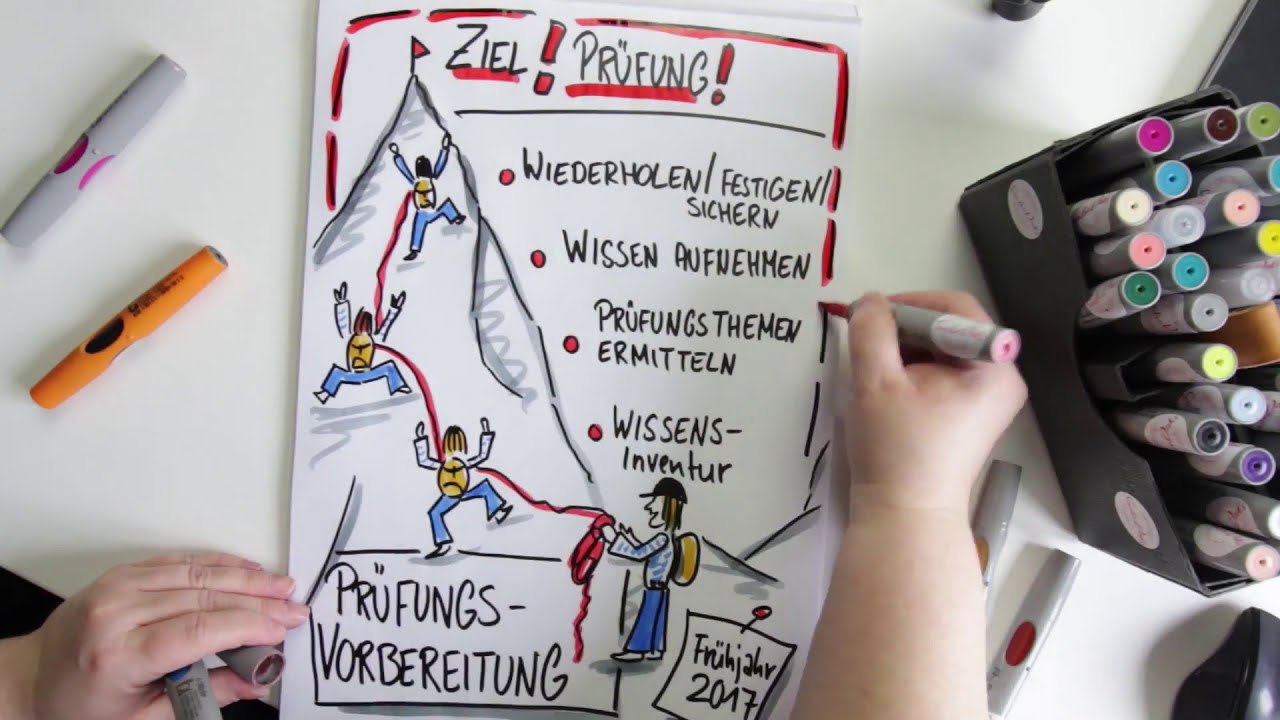 ZIEL! PRÜFUNG!
WIEDERHOLEN/FESTIGEN/
SICHERN
WISSEN AUFNEHMEN
PRÜFUNGSTHEMEN
ERMITTELN
WISSENS-
Inventur
PRÜFUNGS-
VORBEREITUNG
Frühjahr
2017